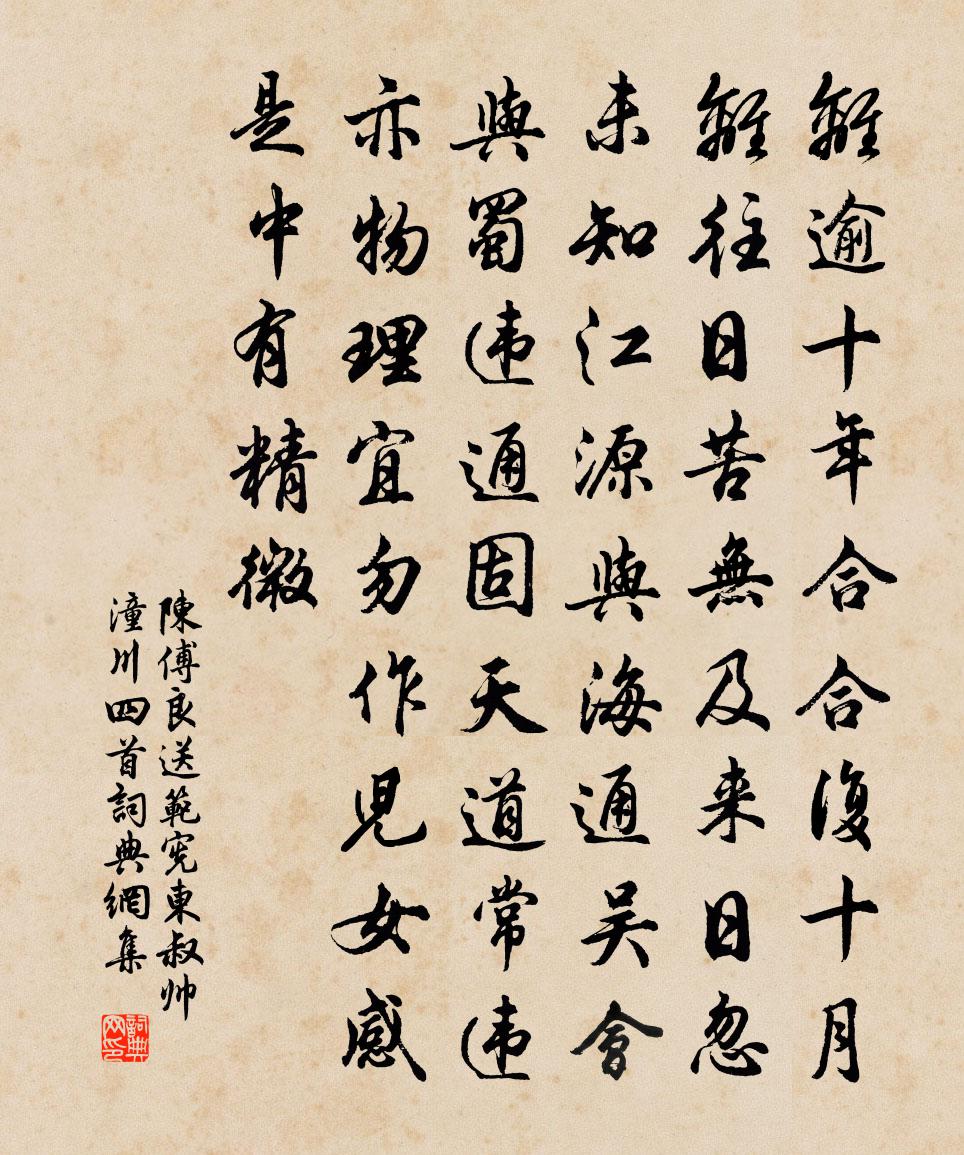 離逾十年合合復十月
離往日苦無及来日忽
未知江源與海通吴會
與蜀违通固天道常违
亦物理宜勿作児女感
是中有精微
陳傅良送範宪東叔帅
潼川四首詞典網集
詞典
网印